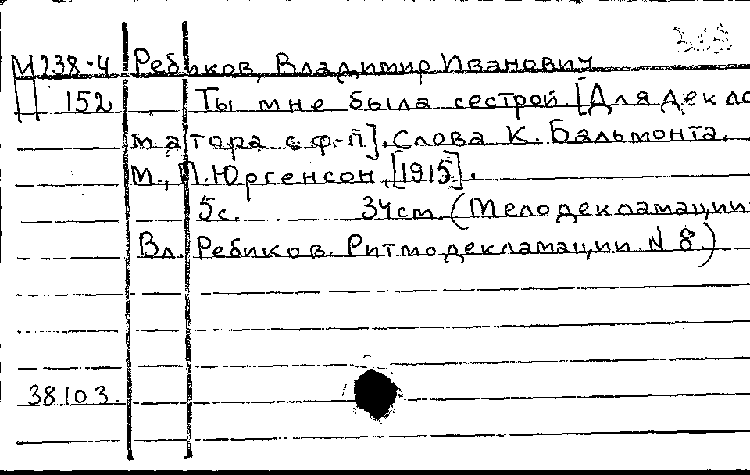 М238-4 Ребиков, Владимир Иванович
152 Ты мне была сестрой [Для декла
матора с ф-п]. Слова К. Бальмонта.
М., П. Юргенсон, [1915].
5с. 34см (Мелодекламации
Вл. Ребиков. Ритмодекламации N 8)
38103.